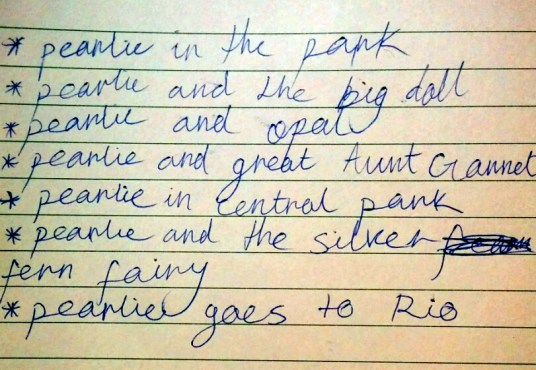 * pearlie in the park
* pearlie and the big doll
* pearlie and opal
* pearlie and great Aunt Gannet
* pearlie in central park
* pearlie and the silver
fern fairy
* pearlie goes to Rio